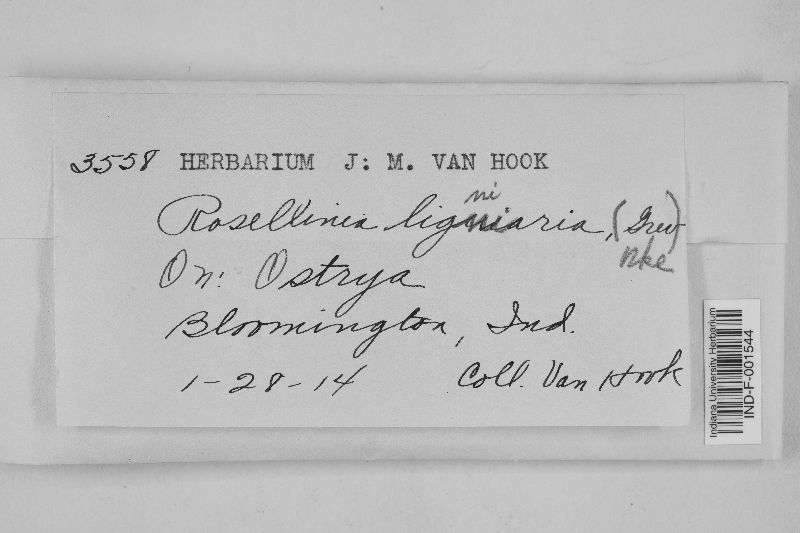 3558 HERBARIUM J: M. VAN HOOK
ni
Rosellinia ligniaria, (Grev)
Nke
On: Ostrya
Bloomington, Ind.
1-28-14 Coll. Van Hook
Indiana University Herbarium
IND-F-001544